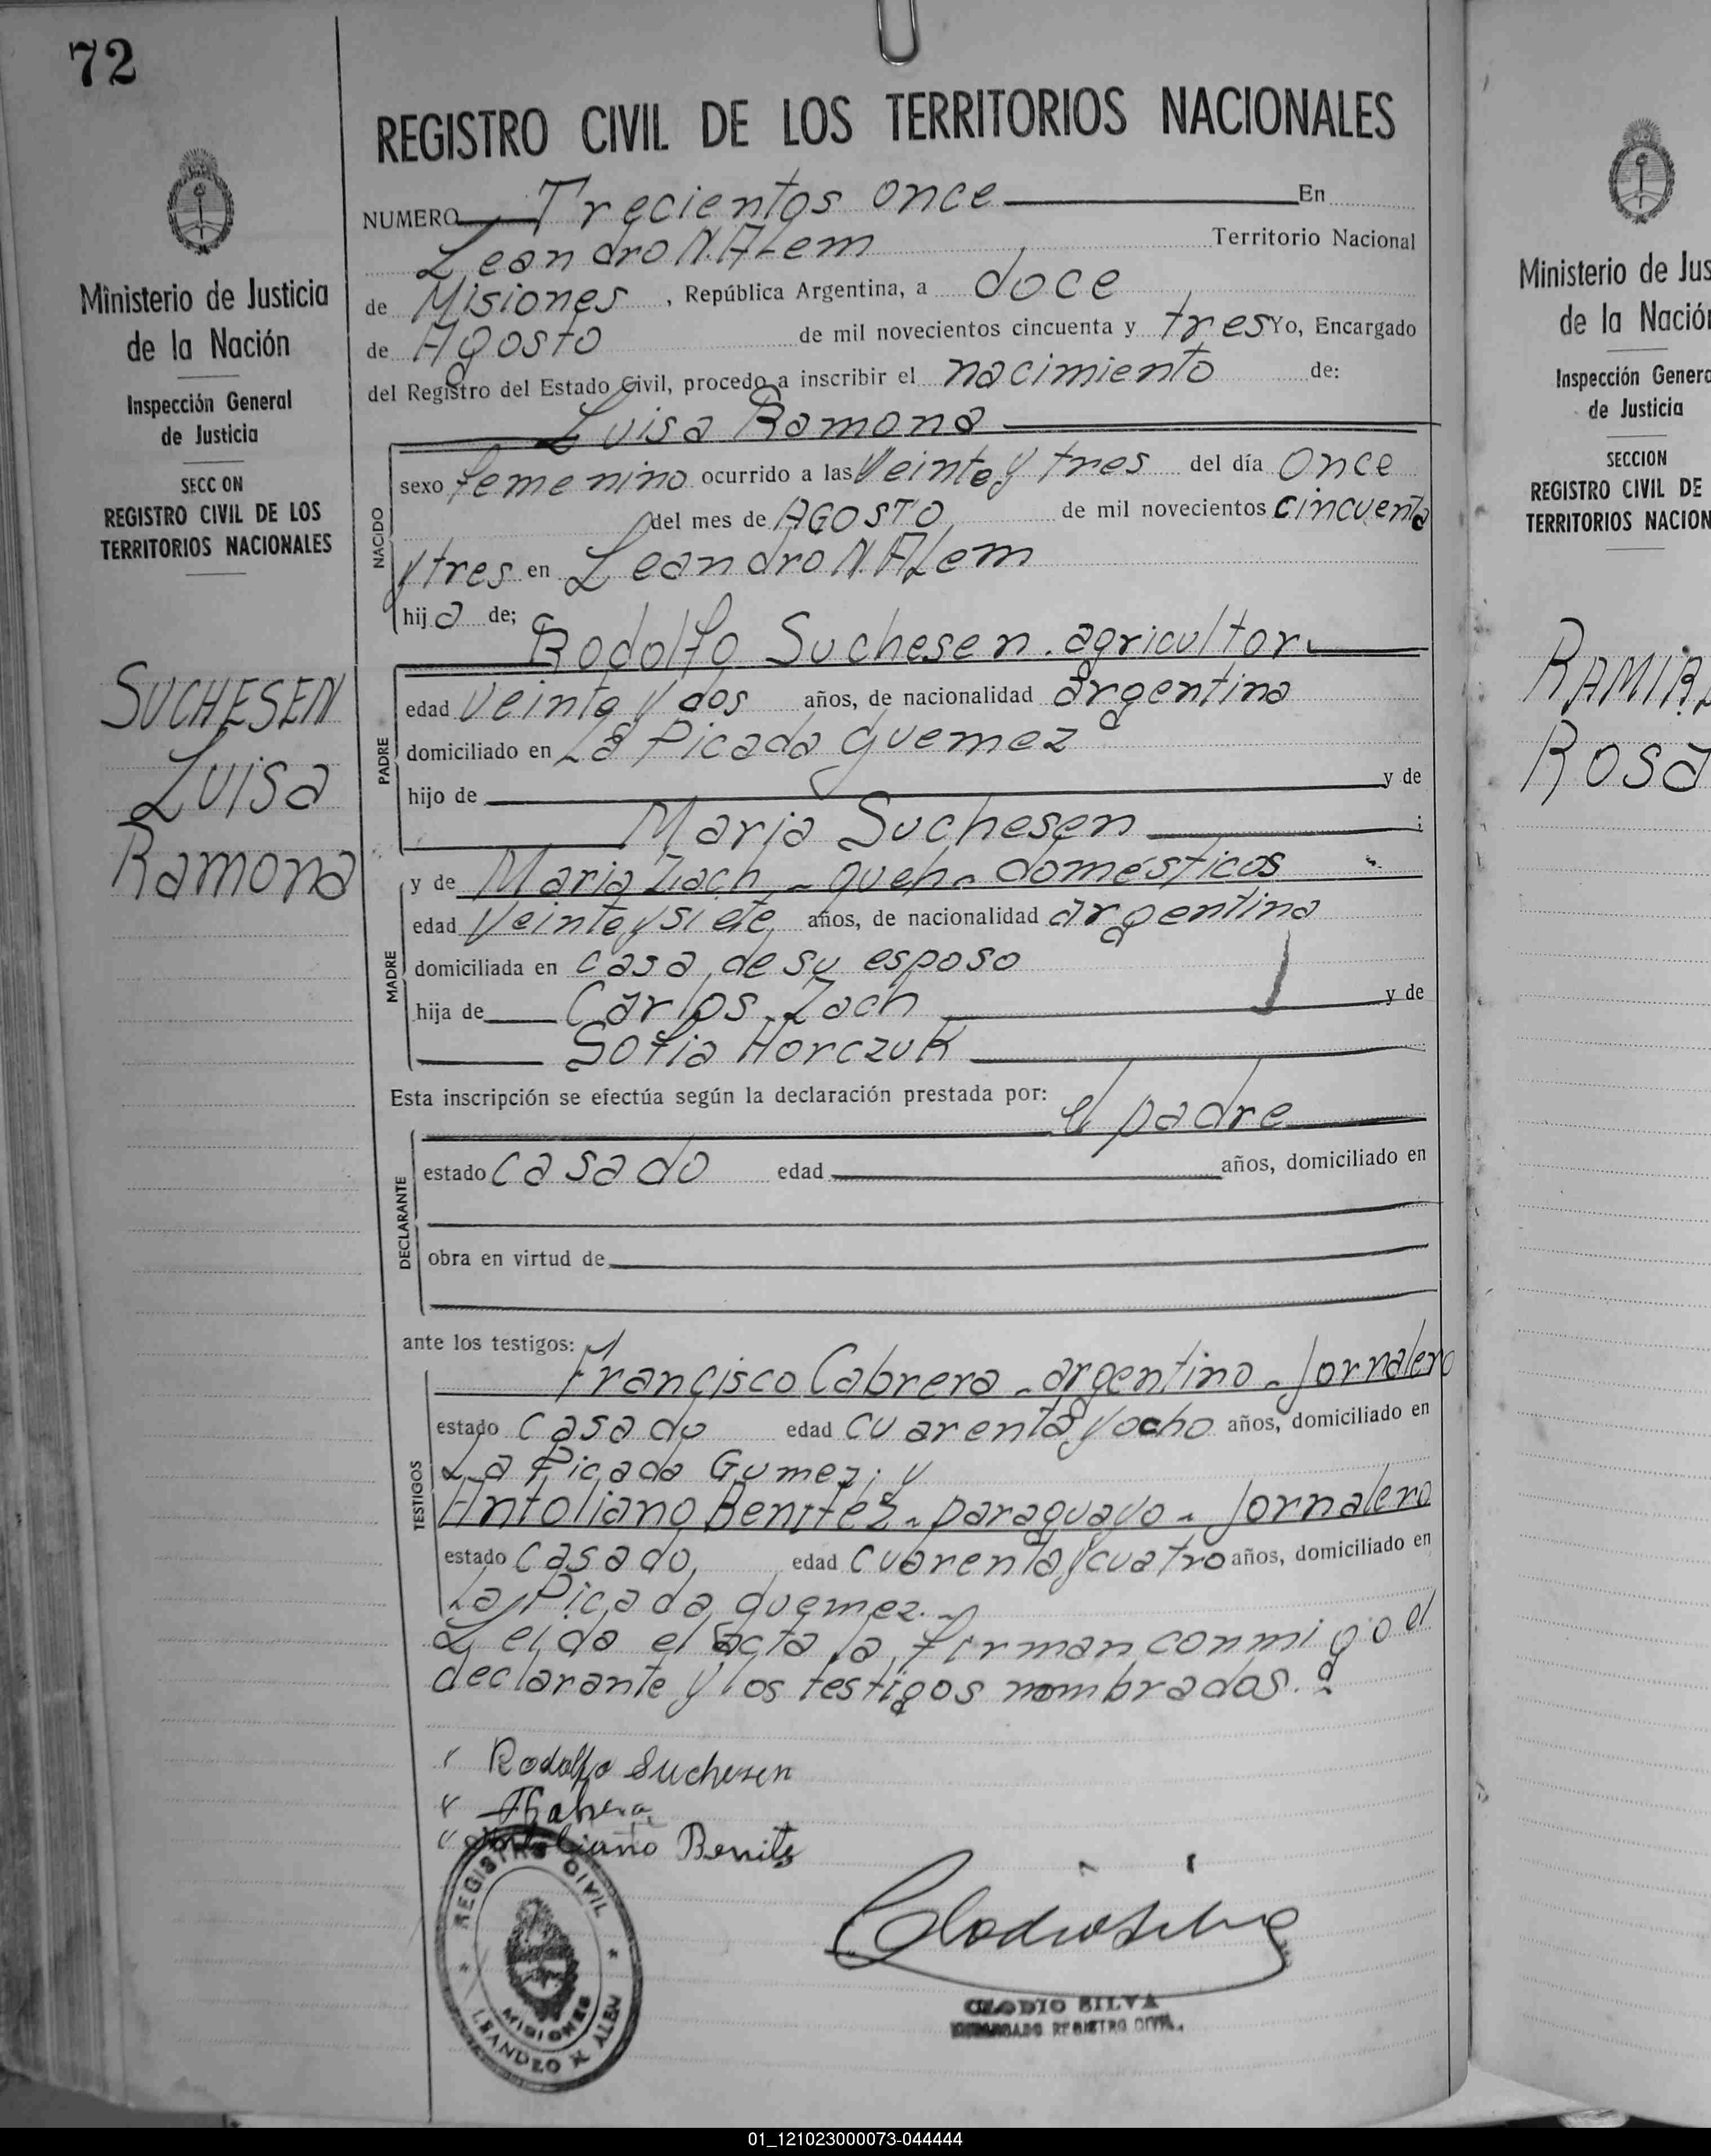 72
REGISTRO CIVIL DE LOS TERRITORIOS NACIONALES
NUMERO Trecientos once En
Leandro N. ALem Territorio Nacional
de Misiones, República Argentina, a doce
de Agosto de mil novecientos cincuenta y tres Yo, Encargado
del Registro del Estado Civil, procedo a inscribir el nacimiento de:
Luisa Ramona
NACIDO
sexo femenino ocurrido a las Veinte y tres del día Once
del mes de AGOSTO de mil novecientos cincuenta
y tres en Leandro N. ALem
hija de;
Rodolfo Suchesen. agricultor.
PADRE
edad Veinte y dos años, de nacionalidad argentina
domiciliado en La Picada Guemez
hijo de y de
Maria Suchesen ;
MADRE
y de Maria Zach - queh. domésticos
edad Veinte y siete años, de nacionalidad argentina
domiciliada en casa de su esposo
hija de Carlos Zach y de
Sofia Horczuk
Esta inscripción se efectúa según la declaración prestada por:
el padre
DECLARANTE
estado casado edad años, domiciliado en
obra en virtud de
ante los testigos:
TESTIGOS
Francisco Cabrera - argentino - Jornalero
estado casado edad cuarenta y ocho años, domiciliado en
La Picada Gumez; y
Antoliano Benitez - paraguayo - Jornalero
estado casado, edad cuarenta y cuatro años, domiciliado en
La Picada guemez.-
Leida el acta la firman conmigo el
declarante y los testigos nombrados.-
Rodolfo Suchesen
Antoliano Benitez
REGISTRO CIVIL
MISIONES
LEANDRO N. ALEM
Clodio Silva
CLODIO SILVA
ENCARGADO REGISTRO CIVIL.
Ministerio de Justicia
de la Nación
Inspección General
de Justicia
SECC ON
REGISTRO CIVIL DE LOS
TERRITORIOS NACIONALES
SUCHESEN
Luisa
Ramona
Ministerio de Jus
de la Nació
Inspección Genera
de Justicia
SECCION
REGISTRO CIVIL DE
TERRITORIOS NACION
RAMIR
Rosa
01_121023000073-044444